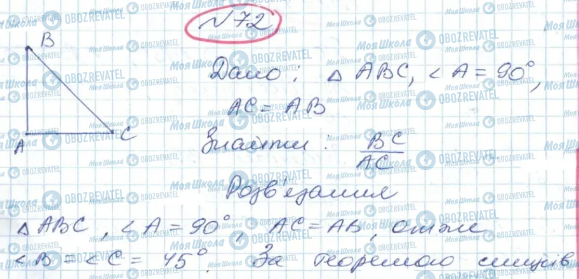 №72
B
Дано: △ ABC, ∠A = 90°,
AC = AB
A C
Знайти: BC/AC
Розв'язання
△ ABC, ∠A = 90°, AC = AB, отже
∠B = ∠C = 45°. За теоремою синусів